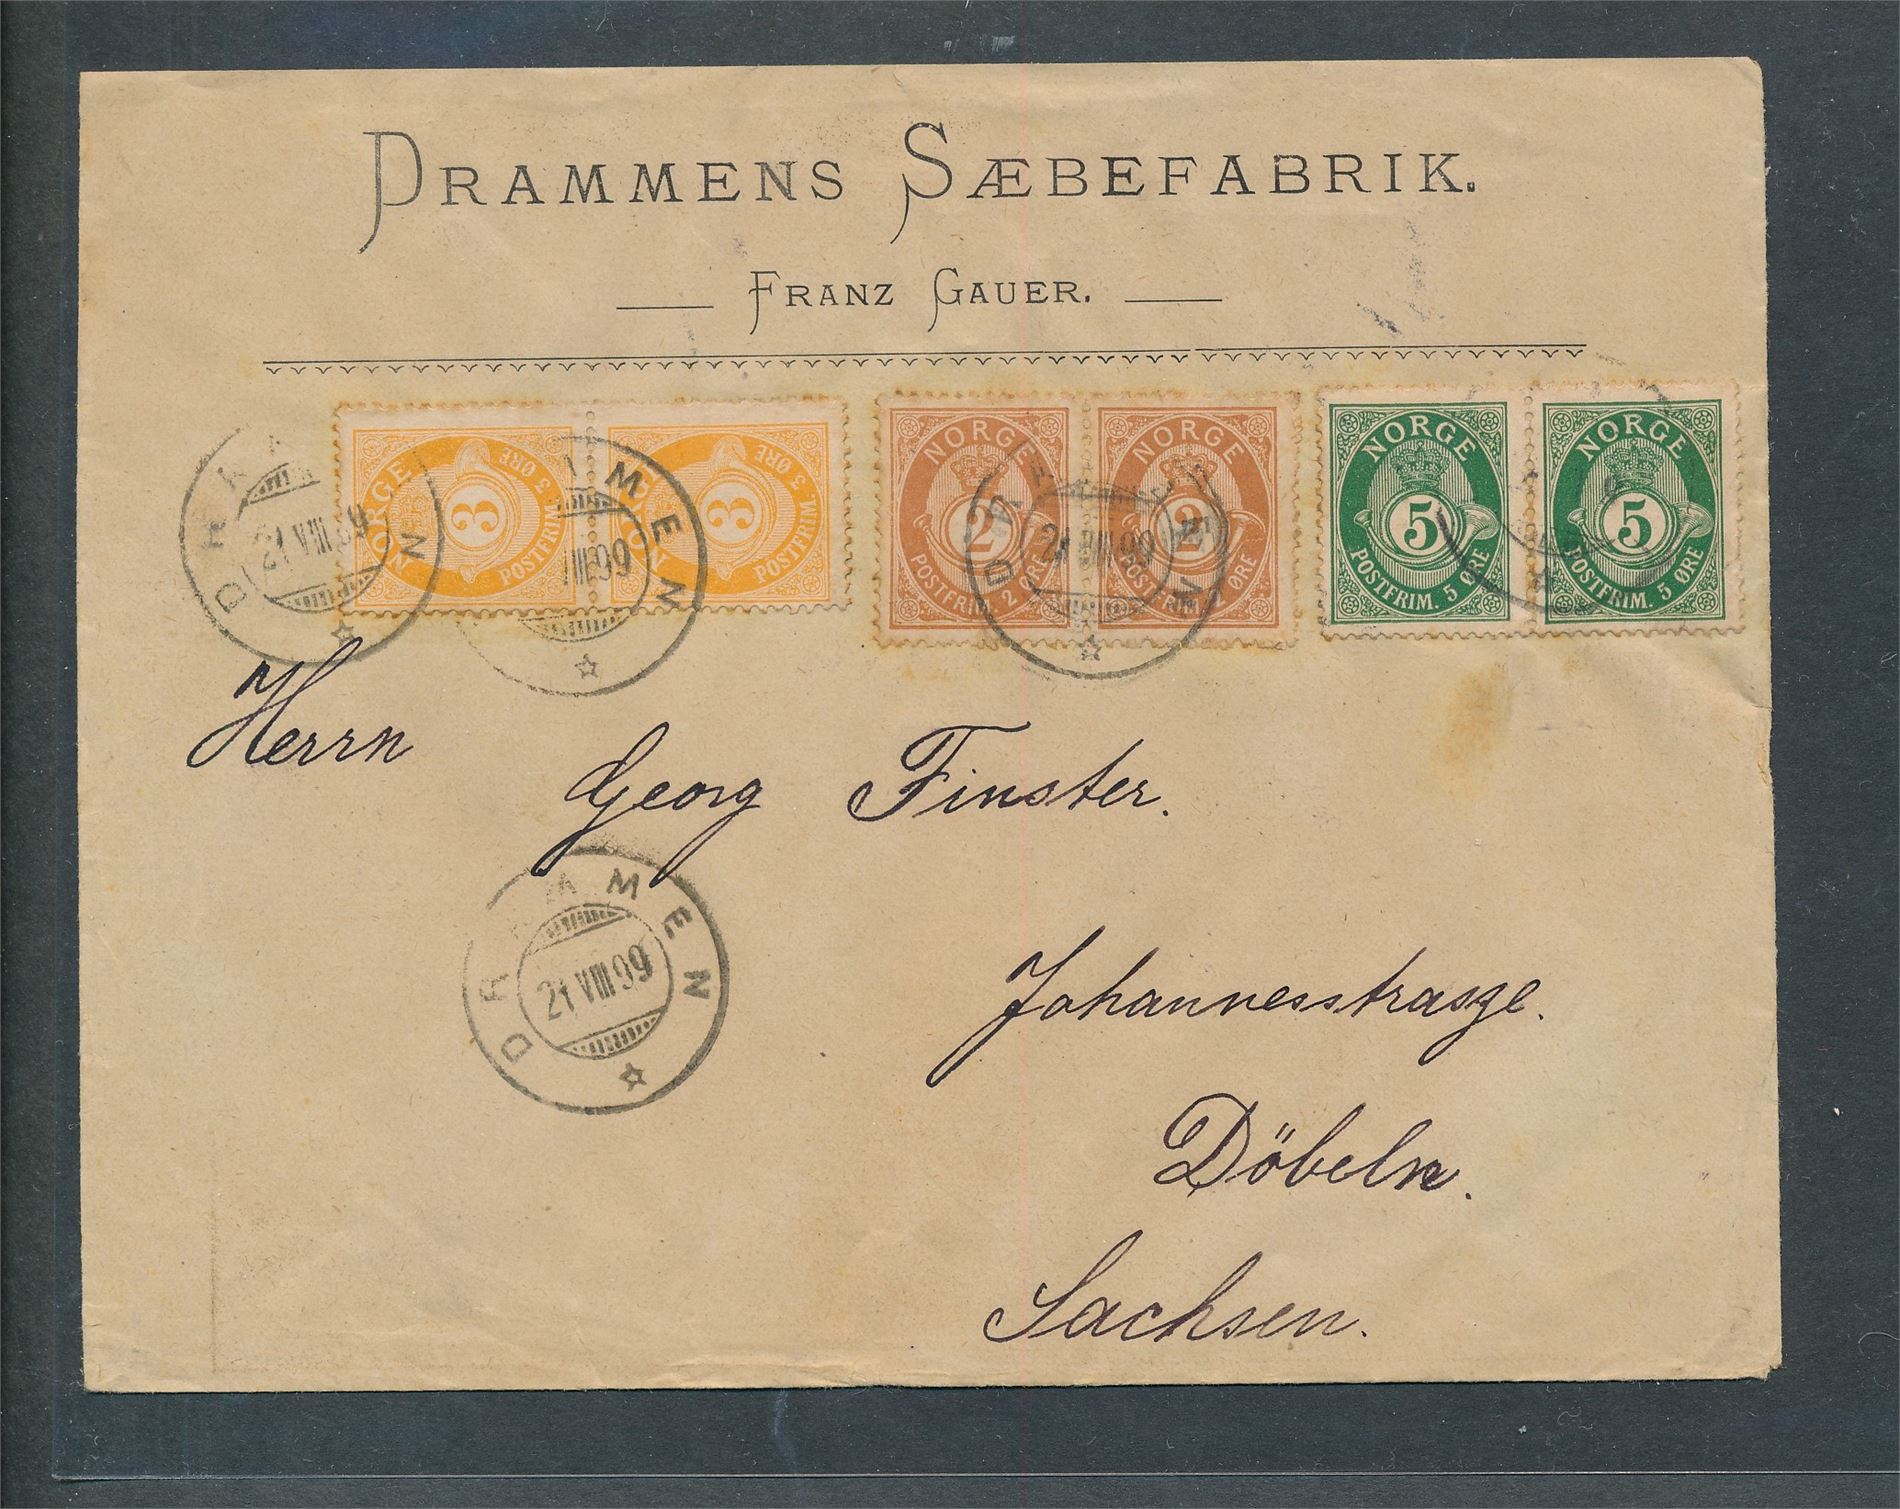 DRAMMENS SÆBEFABRIK.
FRANZ GAUER.
NORGE 3 POSTFRIM. 3 ØRE
NORGE 3 POSTFRIM. 3 ØRE
NORGE 2 POSTFRIM. 2 ØRE
NORGE 2 POSTFRIM. 2 ØRE
NORGE 5 POSTFRIM. 5 ØRE
NORGE 5 POSTFRIM. 5 ØRE
DRAMMEN
21 VIII 99
DRAMMEN
VIII 99
DRAMMEN
21 VIII 99
Herrn
Georg Finster.
DRAMMEN
21 VIII 99
Johannesstrasze.
Döbeln.
Sachsen.